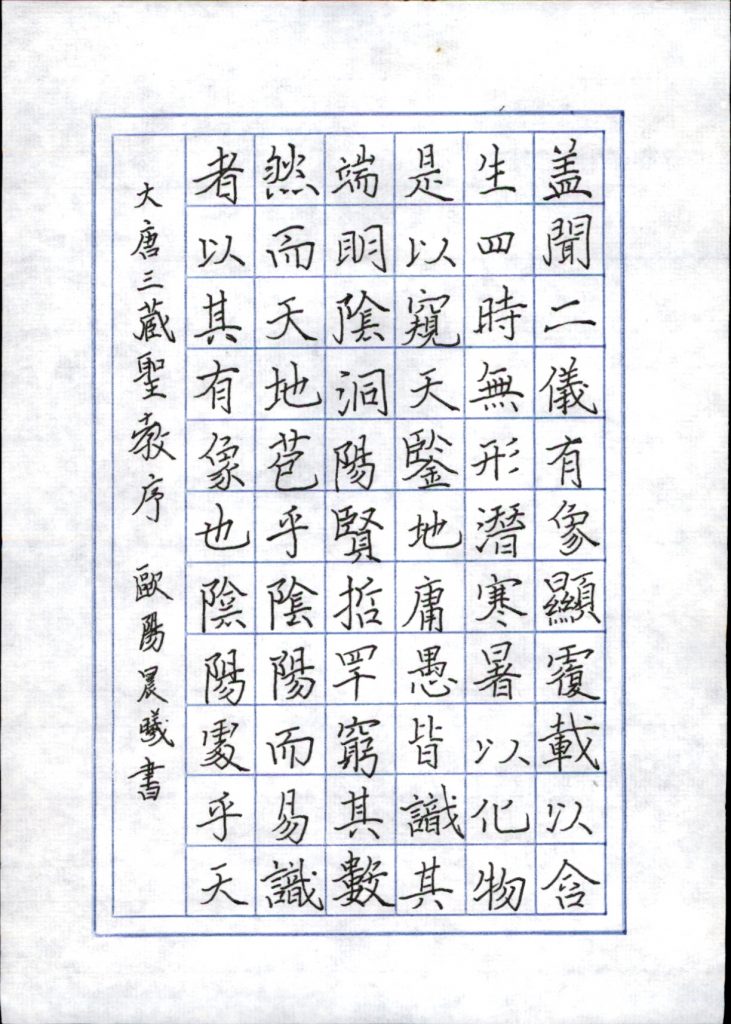 蓋聞二儀有像顯覆載以含
生四時無形潛寒暑以化物
是以窺天鑒地庸愚皆識其
端明陰洞陽賢哲罕窮其數
然而天地苞乎陰陽而易識
者以其有像也陰陽處乎天
大唐三藏聖教序 歐陽晨曦書